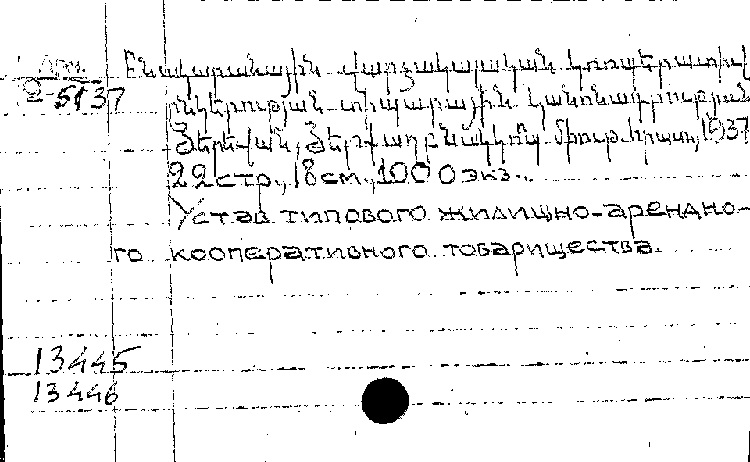 Арм.
2-5137
Բնակարանային վարձակալական կոոպերատիվ
ընկերության տիպարային կանոնադրություն
Յերևան, Յեր. միութ. հրատ., 1937
22 стр., 18 см., 1000 экз.
Устав типового жилищно-арендно-
го кооперативного товарищества.
13445
13446